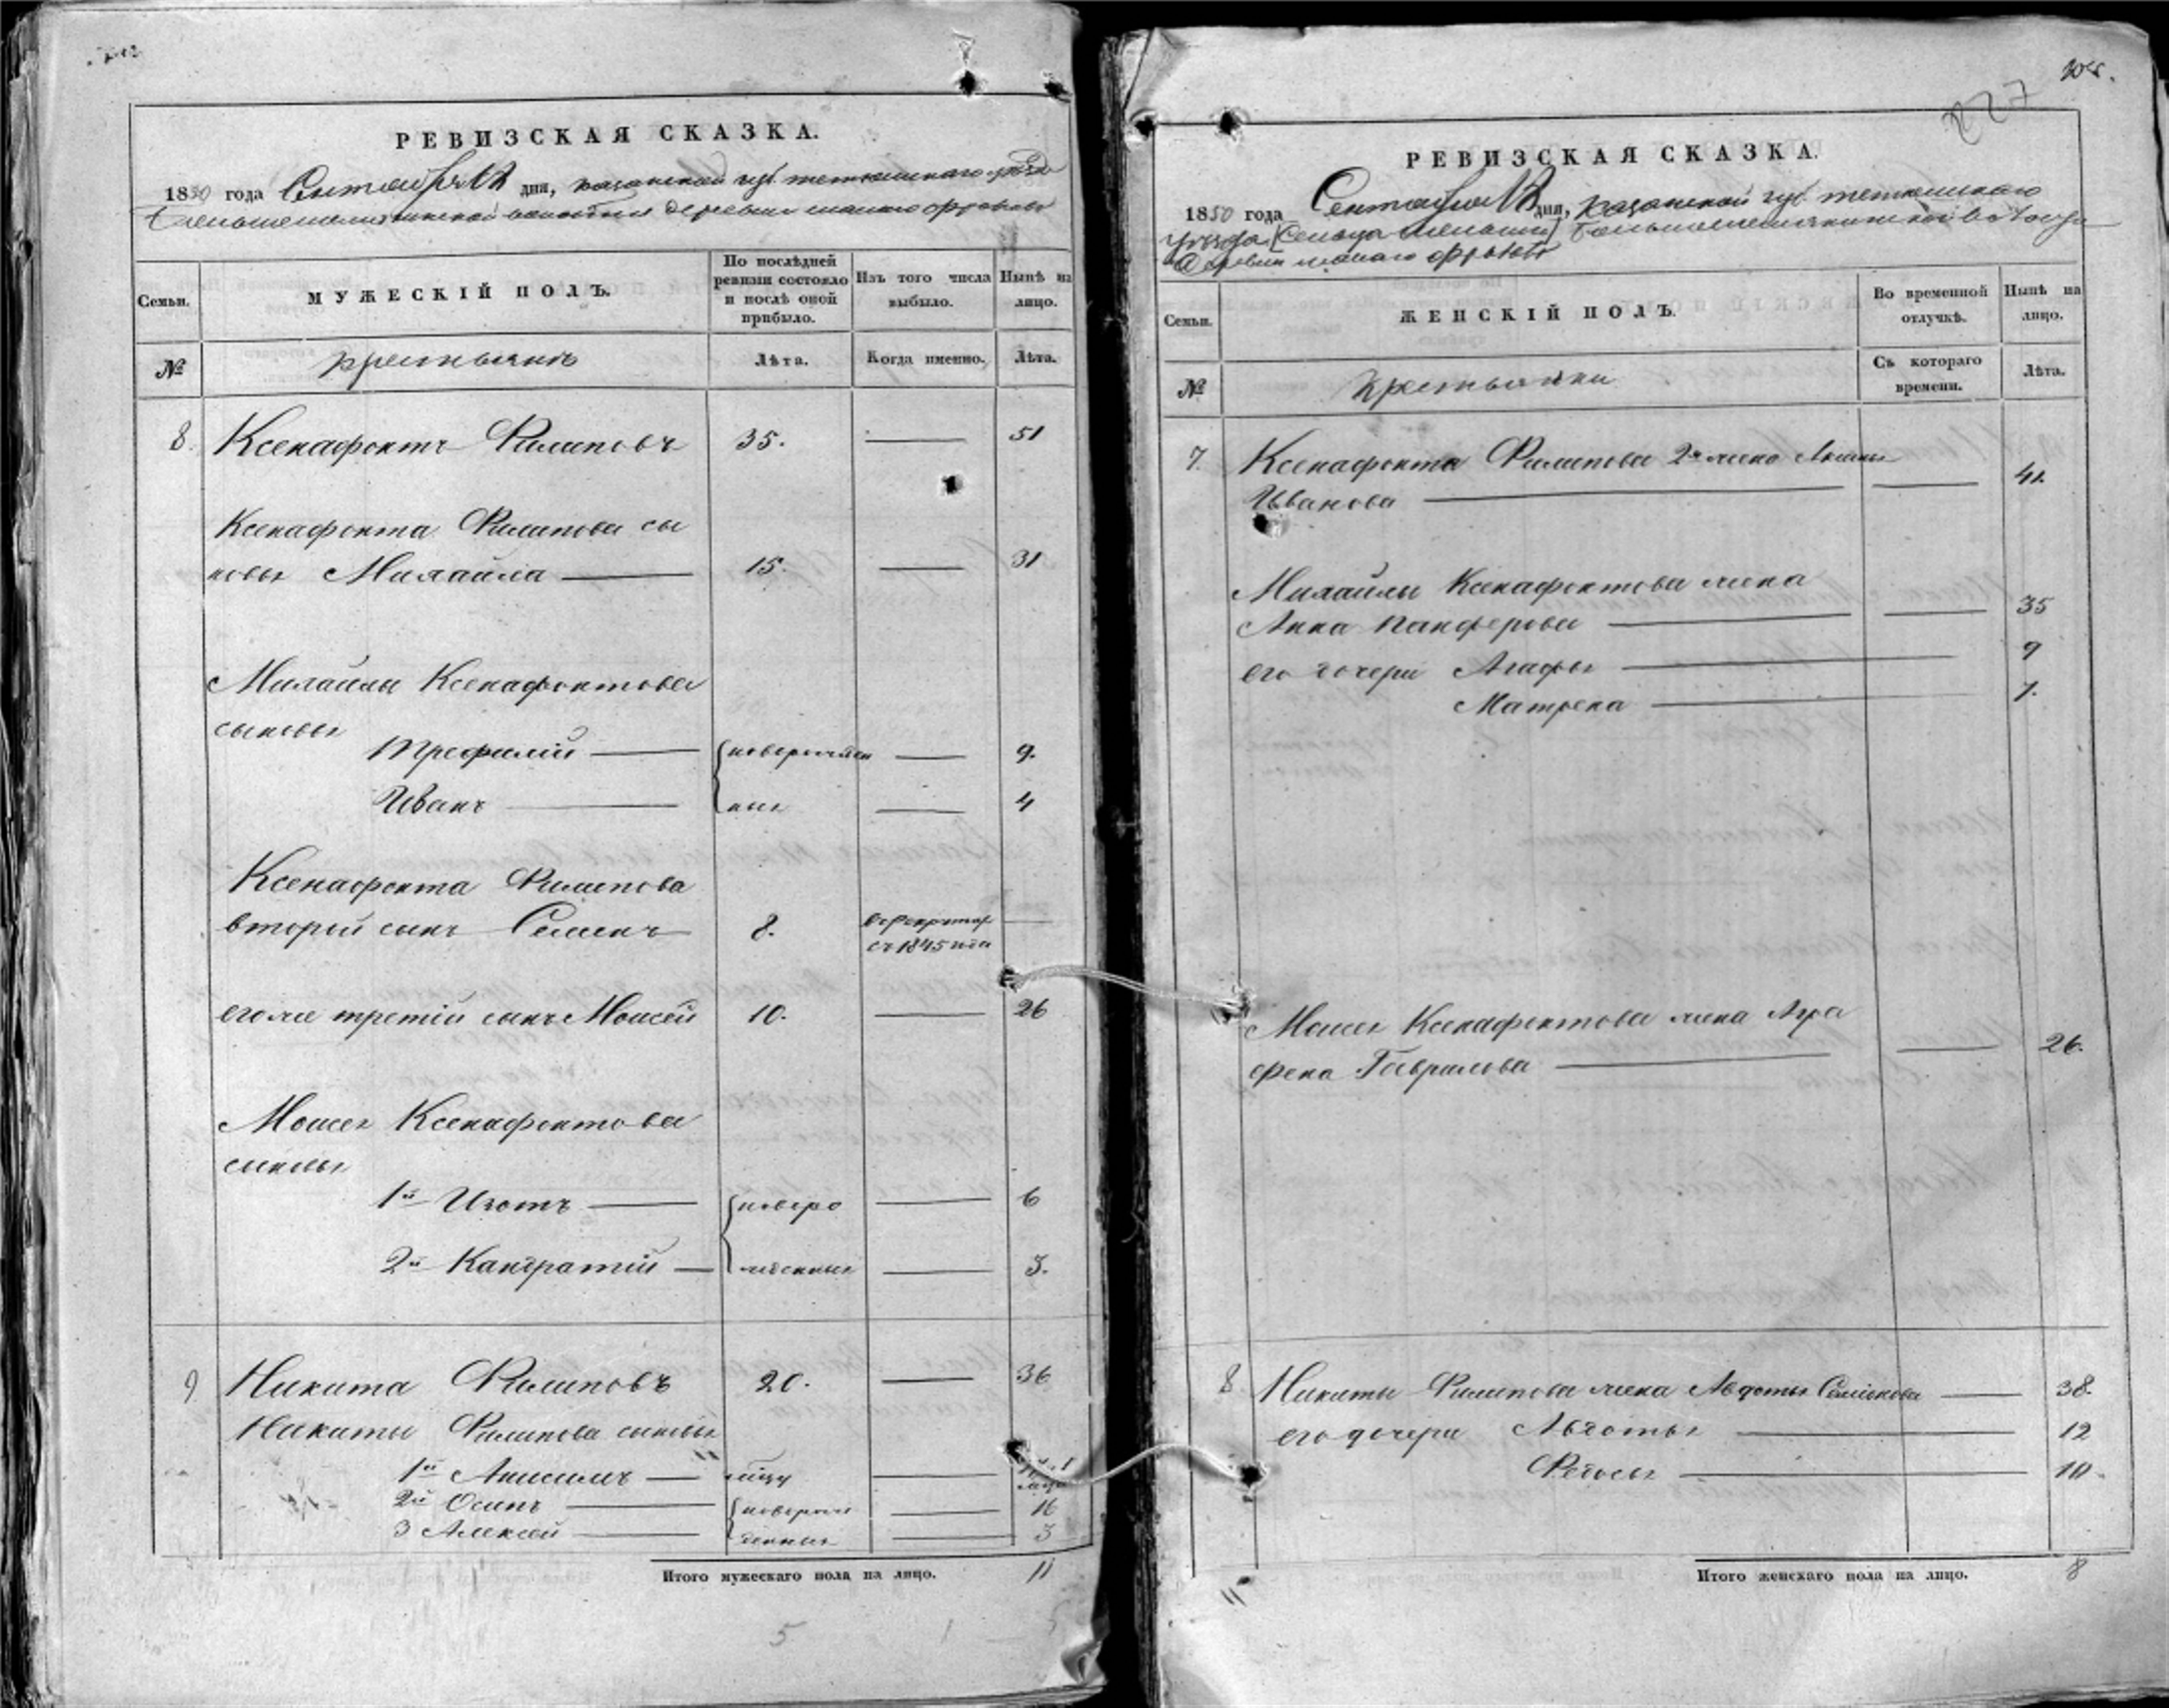 РЕВИЗСКАЯ СКАЗКА.
1850 года Сентября дня, казанской губ тетюшскаго уезда
волости деревни малаго
Семьи.
МУЖЕСКІЙ ПОЛЪ.
По послѣдней ревизіи состояло и послѣ оной прибыло.
Изъ того числа выбыло.
Нынѣ на лицо.
№
крестьянъ
Лѣта.
Когда именно.
Лѣта.
8. Ксенафонтъ Филиповъ 35. 51
Ксенафонта Филипова сы
новья Михайла 15. 31
Михайлы Ксенафонтова
сыновья
Трефилій новорожден 9.
Иванъ ныя 4
Ксенафонта Филипова
второй сынъ Семенъ 8. в рекруты
съ 1845 года
его же третій сынъ Моисей 10. 26
Моисея Ксенафонтова
сыновья
1й Изотъ новоро 6
2й Кандратій жденныя 3.
9 Никита Филиповъ 20. 36
Никиты Филипова сыновья
1й Анисимъ
2й Осипъ новорож 16
3 Алексей денныя 3
Итого мужескаго пола на лицо. 11
5
227
РЕВИЗСКАЯ СКАЗКА.
1850 года Сентября дня, казанской губ тетюшскаго
уезда
деревни малаго
Семьи.
ЖЕНСКІЙ ПОЛЪ.
Во временной отлучкѣ.
Нынѣ на лицо.
№
крестьянки
Съ котораго времени.
Лѣта.
7. Ксенафонта Филипова 2я жена
Иванова 41.
Михайлы Ксенафонтова жена
Анна Панферова 35
его дочери Агафья 9
Матрена 1.
Моисея Ксенафонтова жена Агра
фена Гаврилова 26.
8 Никиты Филипова жена Авдотья Семенова 38.
его дочери Авдотья 12
Федосья 10
Итого женскаго пола на лицо. 8